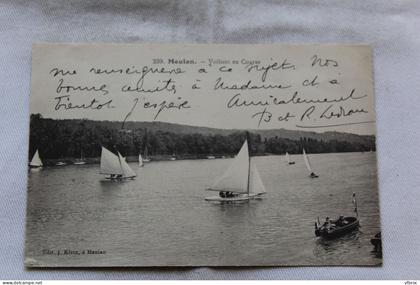 239. Meulan. — Voiliers en Course
me renseigner à ce sujet. Nos
bonnes amitiés à Madame et à
bientôt j'espère Amicalement
B et R.
Edit. J. Kleia, à Meulan